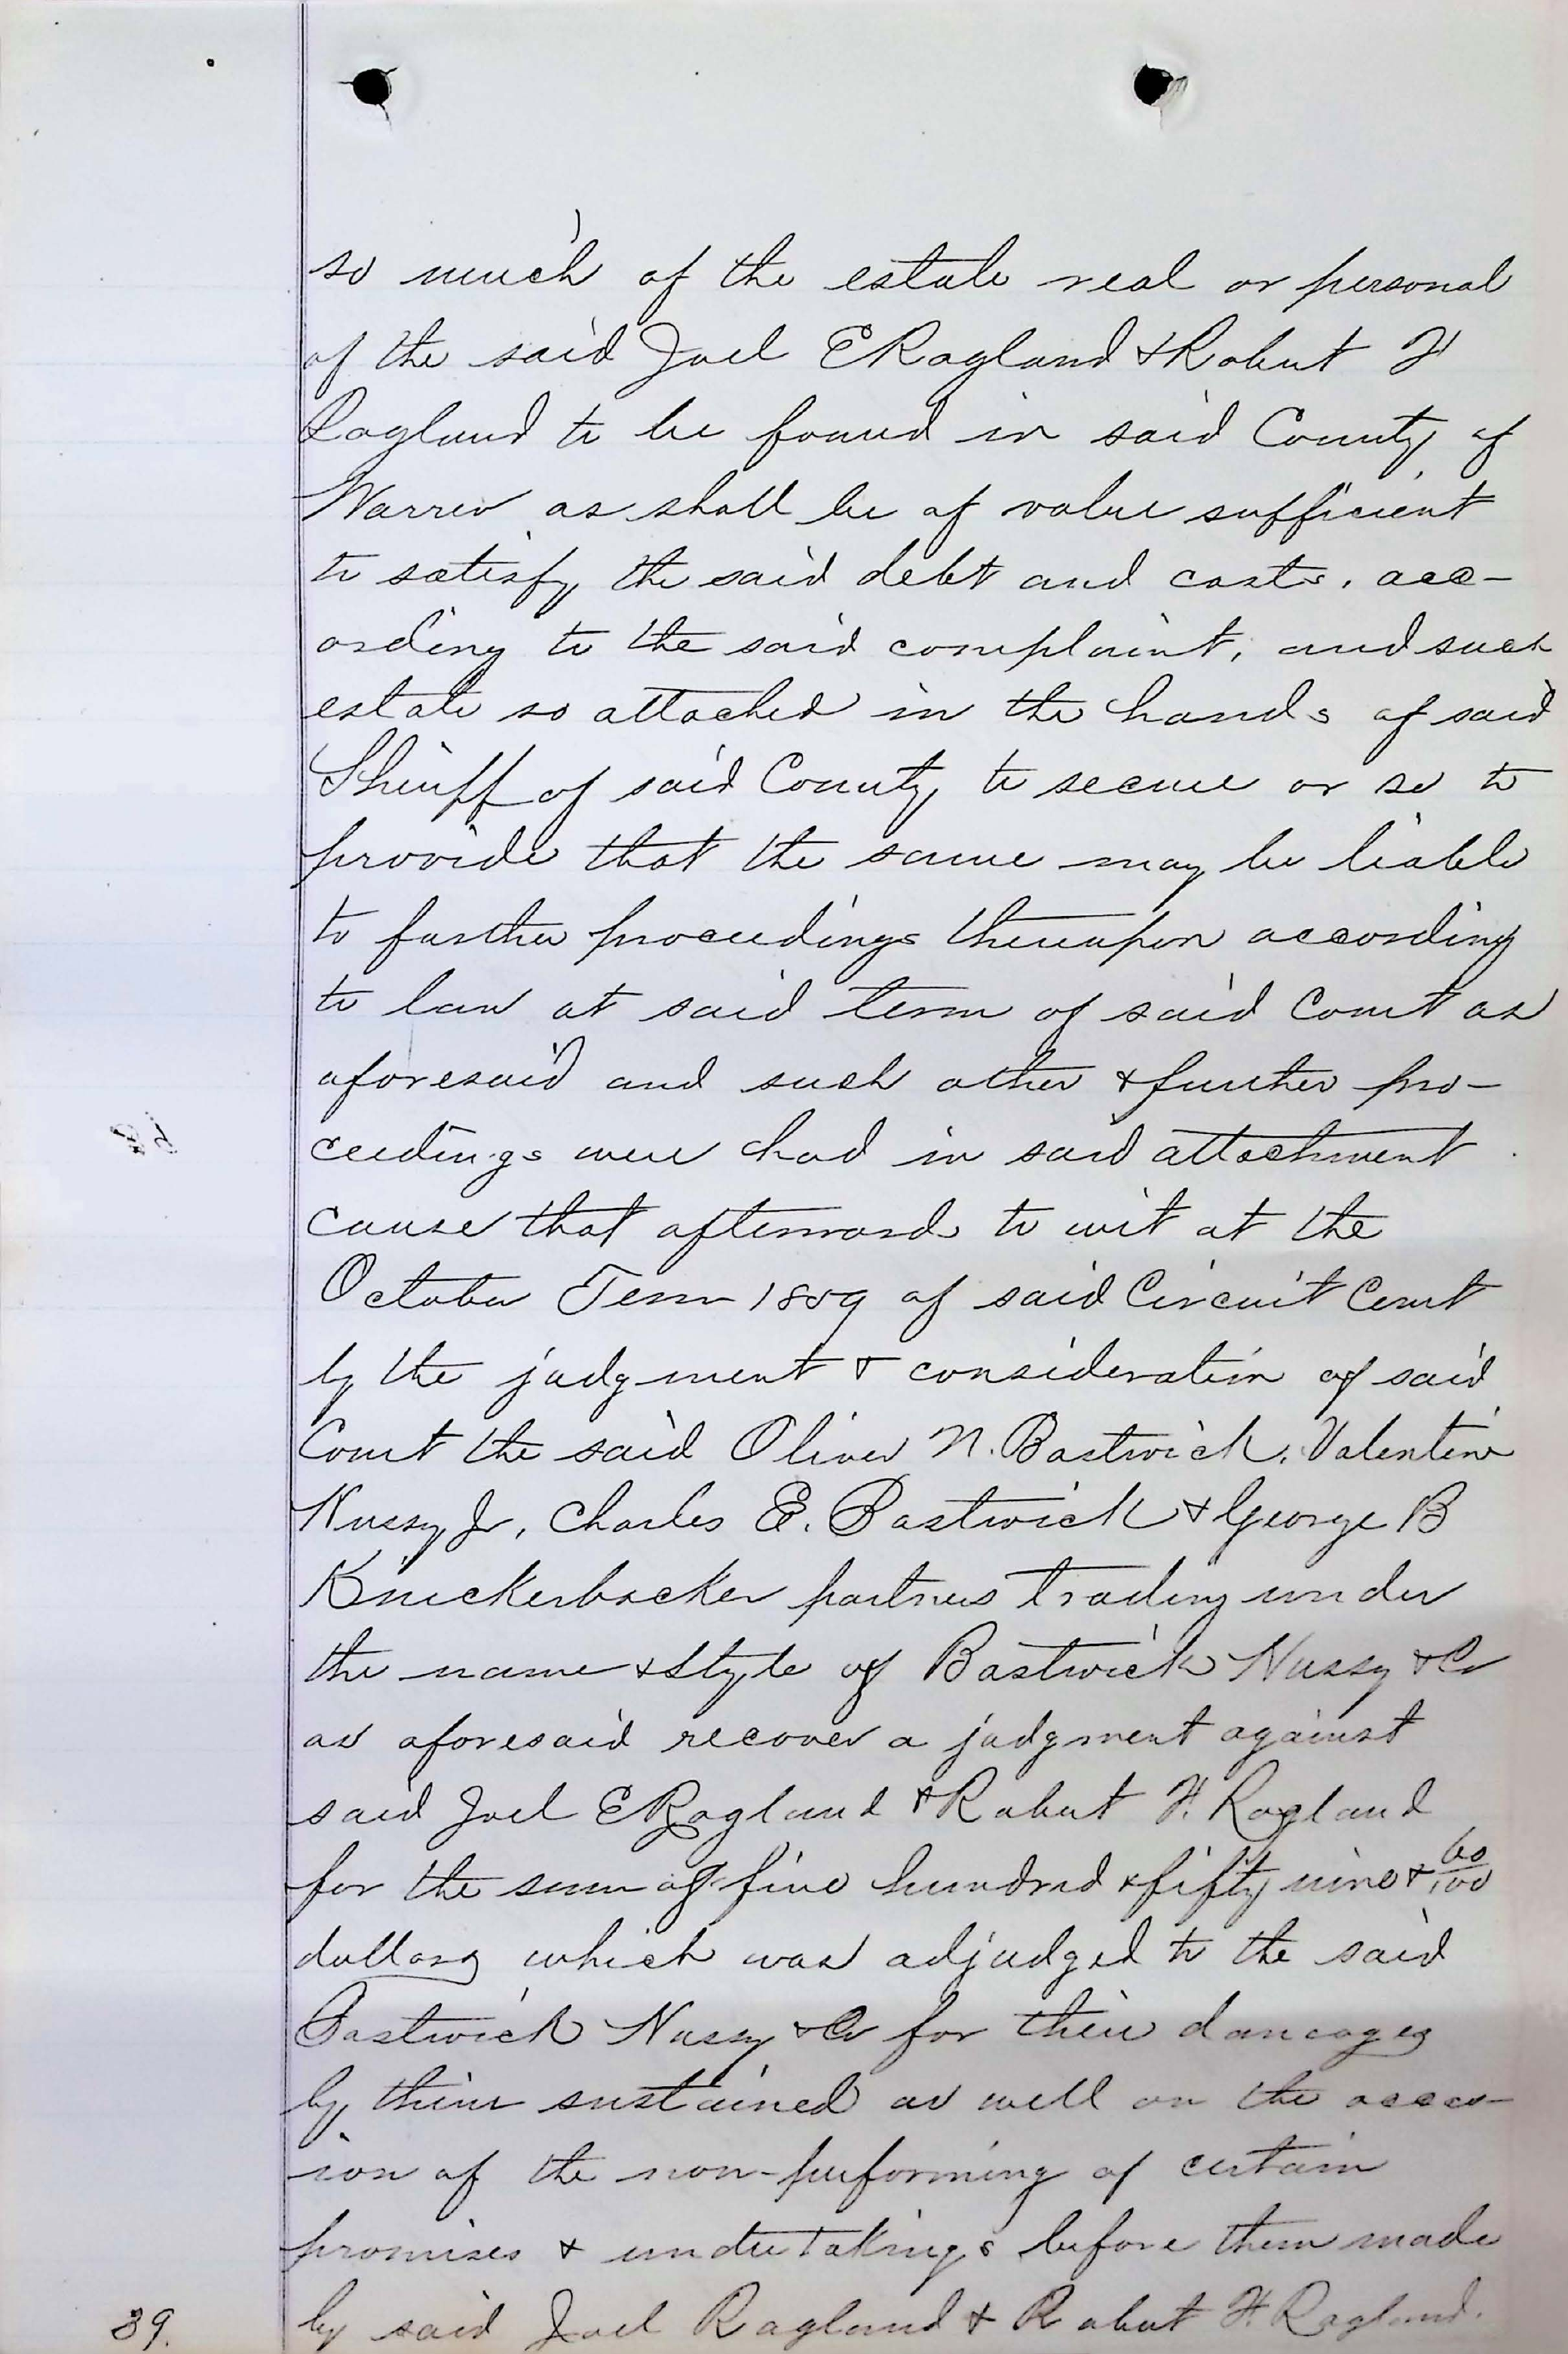 so much of the estate real or personal
of the said Joel E Ragland & Robert H
Ragland to be found in said County of
Warren as shall be of value sufficient
to satisfy the said debt and costs, acc-
ording to the said complaint, and such
estate so attached in the hands of said
Sheriff of said County to secure or so to
provide that the same may be liable
to further proceedings thereupon according
to law at said term of said Court as
aforesaid and such other & further pro-
ceedings were had in said attachment
cause that afterwards to wit at the
October Term 1859 of said Circuit Court
by the judgment & consideration of said
Court the said Oliver N. Bostwick, Valentine
Hussy Jr, Charles E. Bostwick & George B
Knickerbocker partners trading under
the name & style of Bostwick Hussy & Co
as aforesaid recover a judgment against
said Joel E Ragland & Robert H. Ragland
for the sum of five hundred & fifty nine & 60/100
dollars which was adjudged to the said
Bostwick Hussy & Co for their damages
by them sustained as well on the occas-
ion of the non-performing of certain
promises & undertakings before them made
by said Joel Ragland & Robert H. Ragland.
39.